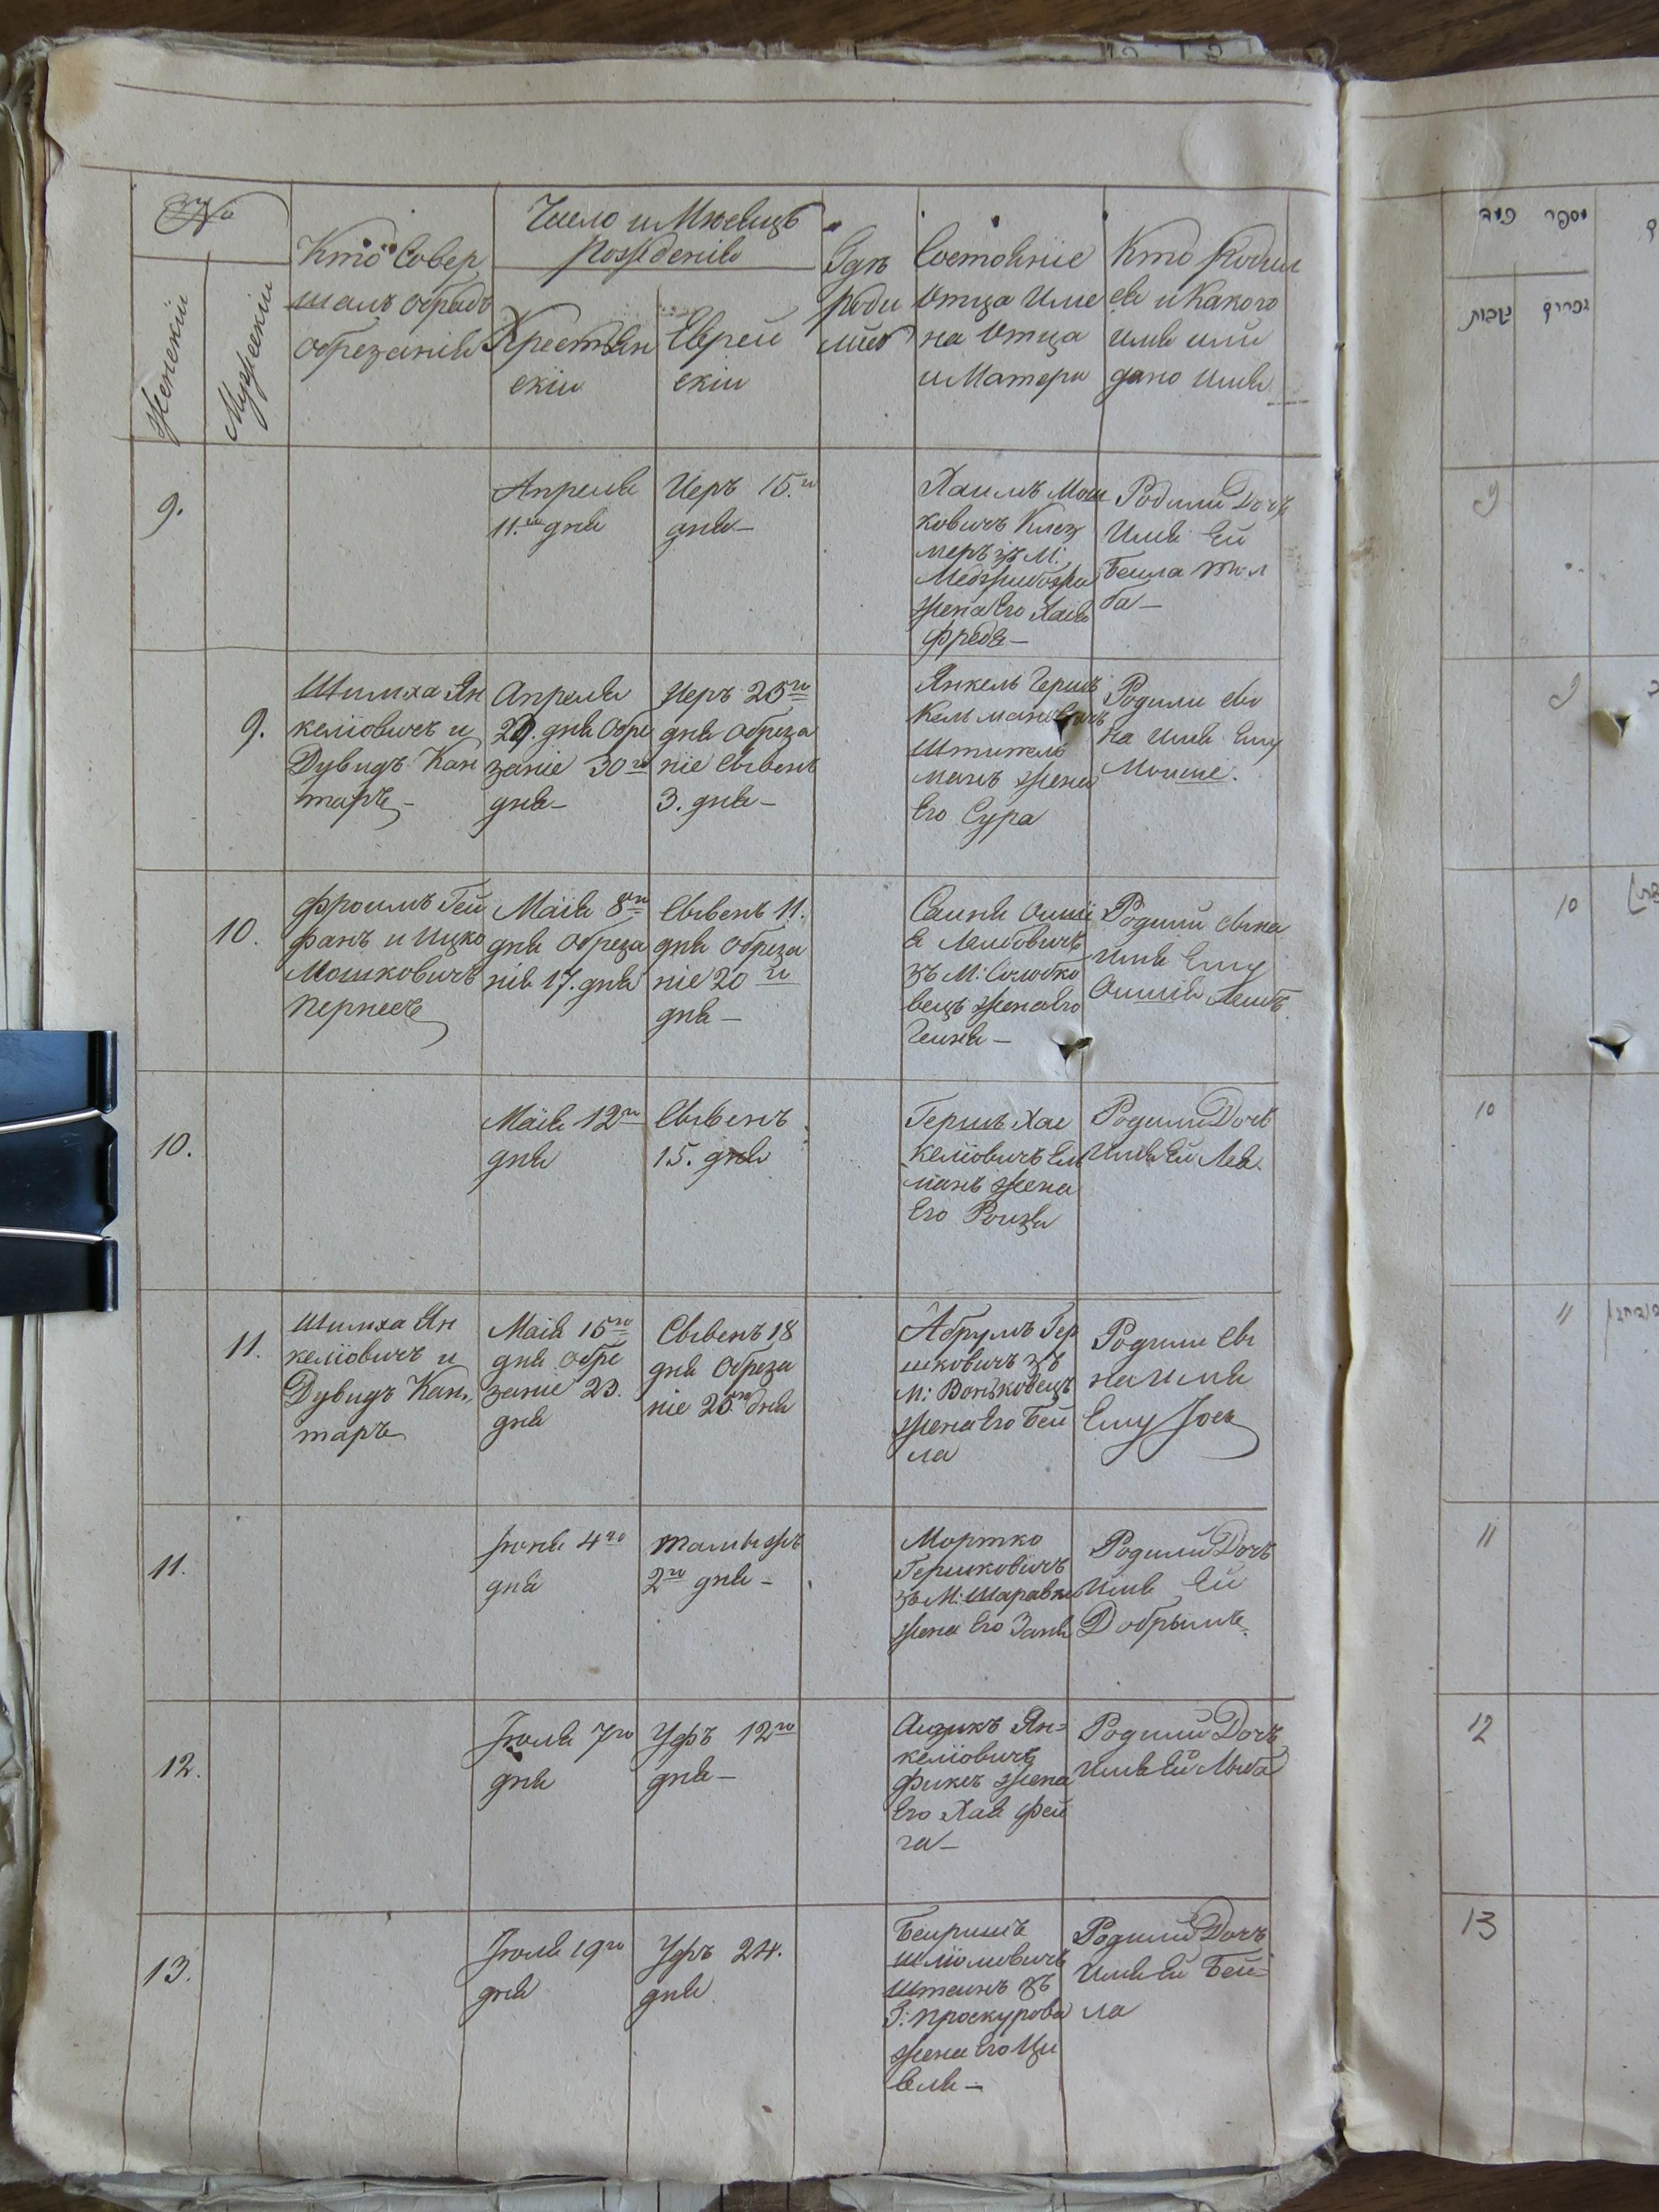 №
Женскіи
Мужескіи
Кто Совер
шалъ обрядъ
обрезанія
Число и Мѣсяцъ
Рожденія
Християн
скіи
Еврей
скіи
Гдѣ
роди
лися
Состояніе
Отца Име
на Отца
и Матери
Кто Родил
ся и Какого
имя или
дано имя
9.
Апреля
11.го дня
Иеръ 15.го
дня
Хаимъ Мош
ковичъ Клез
меръ зъ М:
Меджибожа
жена Его Хая
Фрейда
Родили Дочь
Имя Ей
Бейла
9.
Шимха Ян
келіовичъ и
Дувидъ Кан
таръ
Апреля
дня Обре
заніе 30го
дня
Иеръ 25го
дня Обреза
ніе Сывенъ
3. дня
Янкель Герш
Штитель
манъ жена
Его Сура
Родили сы
на имя Ему
Мошше.
10.
Фроимъ Гей
фанъ и Ицко
Мошковичъ
Пернесъ
Маія 8го
дня Обреза
нія 17. дня
Сывенъ 11.
дня Обреза
ніе 20го
дня
Лейбовичъ
зъ М: Солобко
вецъ жена Его
Родили сына
имя Ему
Ошшія Лейбъ
10.
Маія 12го
дня
Сывенъ
15. дня
Гершъ Хас
келіовичъ Ел
манъ жена
Его Ройзя
Родили Дочь
Имя Ей Лея
11.
Шимха Ян
келіовичъ и
Дувидъ Кан,
таръ
Маія 15го
дня обре
заніе 23.
дня
Сывенъ 18
дня Обреза
ніе 25го дня
Абрумъ Гер
шковичъ зъ
М: Воньковецъ
жена Его Бей
ла
Родили Сы
на имя
Ему Іось
11.
Іюня 4го
дня
Тамызъ
2го дня
Мортко
Гершковичъ
зъ М: Шаравки
жена Его
Родили Дочь
Имя Ей
Добрышъ.
12.
Іюля 7го
дня
Уфъ 12го
дня
Айзикъ Ян=
келіовичъ
Фиксъ жена
Его Хая Фей
га
Родили Дочь
имя Ей
13.
Іюля 19го
дня
Уфъ 24.
дня
Бейришъ
Шліомовичъ
Штейнъ зъ
Г: Проскурова
жена Его Ци
веля
Родили Дочь
Имя Ей Бей=
ла
מספר פיד
זכרים נקבות
9
9
10
10
11
11
12
13